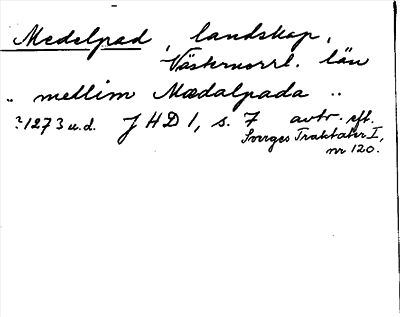 Medelpad, landskap,
Västernorrl. län
.. mellim Mædalpada ..
?1273 u.d. JHD 1, s. 7 avtr. eft.
Sverges Traktater I,
nr 120.